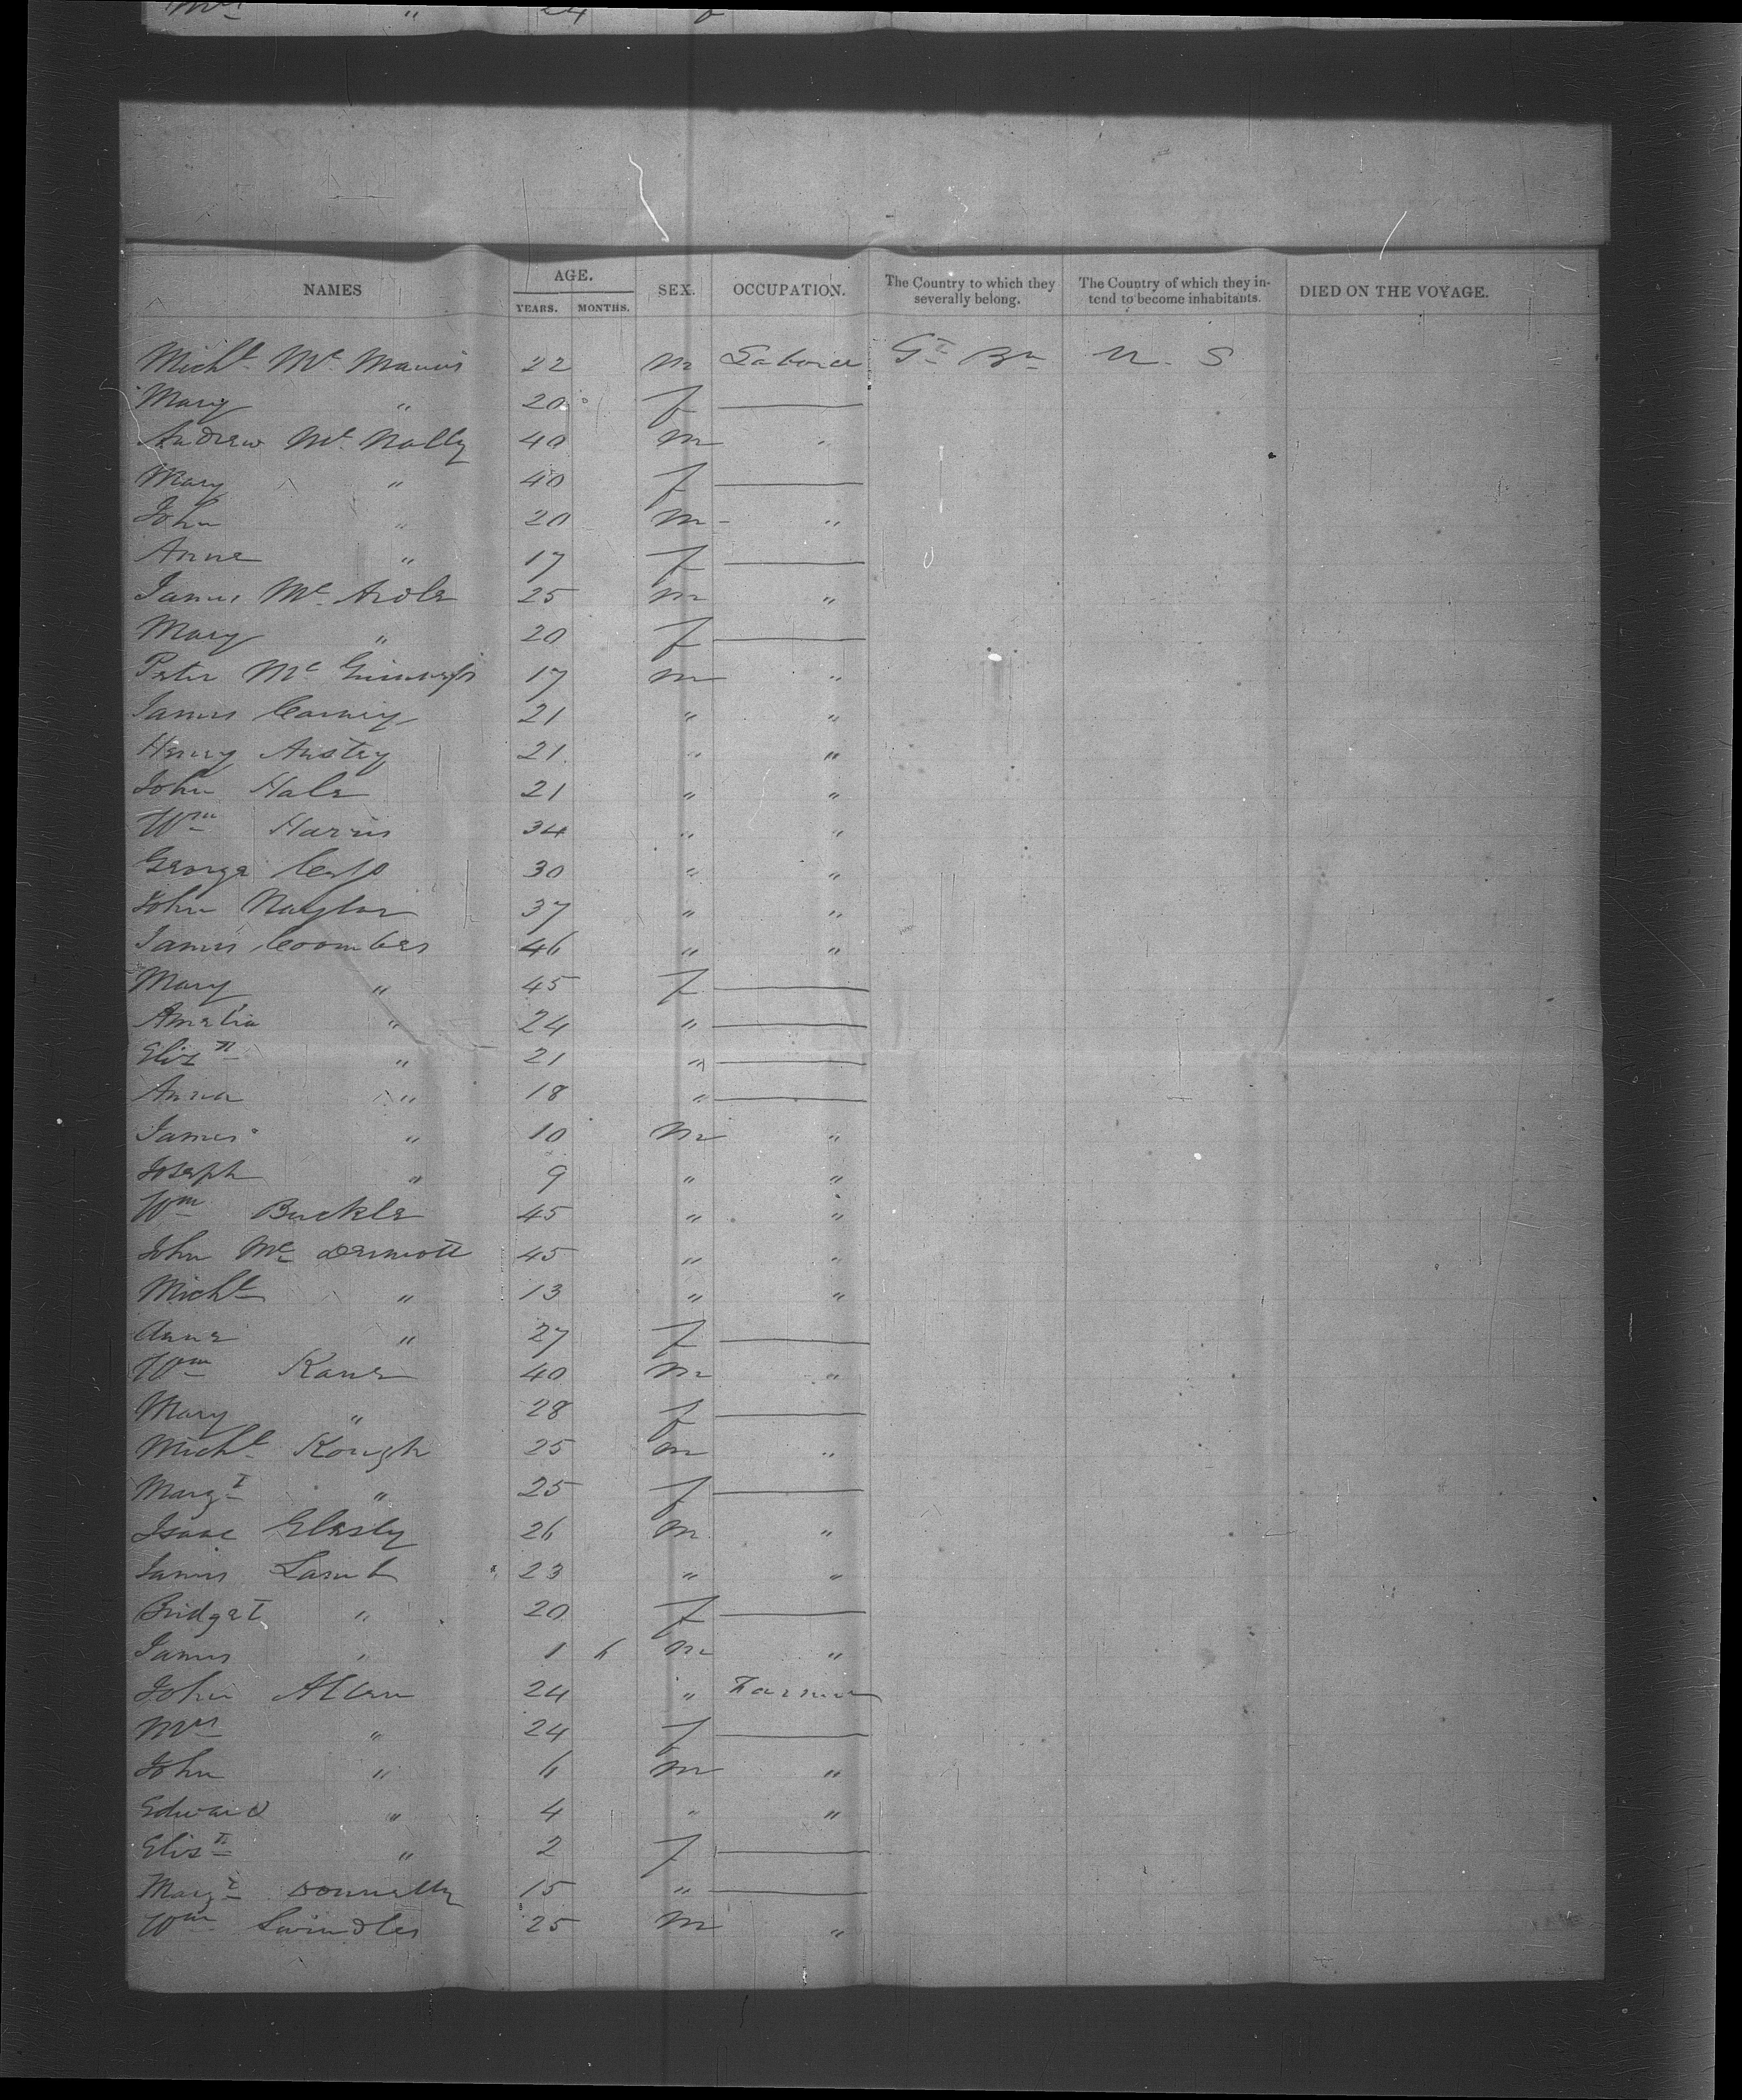 Mrs " 24 f
NAMES AGE. YEARS. MONTHS. SEX. OCCUPATION. The Country to which they severally belong. The Country of which they intend to become inhabitants. DIED ON THE VOYAGE.
Michl Mc Manus 22 m Laborer Gt Bn U. S
Mary " 20 f —
Andrew Mc Nally 40 m "
Mary " 40 f —
John " 20 m "
Anne " 17 f —
James Mc Ardle 25 m "
Mary " 20 f —
Peter Mc 17 m "
James Carney 21 " "
Henry Anstey 21 " "
John Hale 21 " "
Wm Harris 34 " "
George 30 " "
John Naylor 37 " "
James Coombes 46 " "
Mary " 45 f —
Amelia " 24 " —
Elizth " 21 " —
Anna " 18 " —
James " 10 m "
Joseph " 9 " "
Wm Buckle 45 " "
John Mc Dermott 45 " "
Michl " 13 " "
Anne " 27 f —
Wm Kane 40 m "
Mary " 28 f —
Michl Kough 25 m "
Margt " 25 f —
Isaac 26 m "
James Lamb 23 " "
Bridget " 20 f —
James " 1 6 m "
John Allen 24 " Farmer
Mrs " 24 f —
John " 6 m "
Edward " 4 " "
Elisth " 2 f —
Margt Donnelly 15 " —
Wm Swindles 25 m "